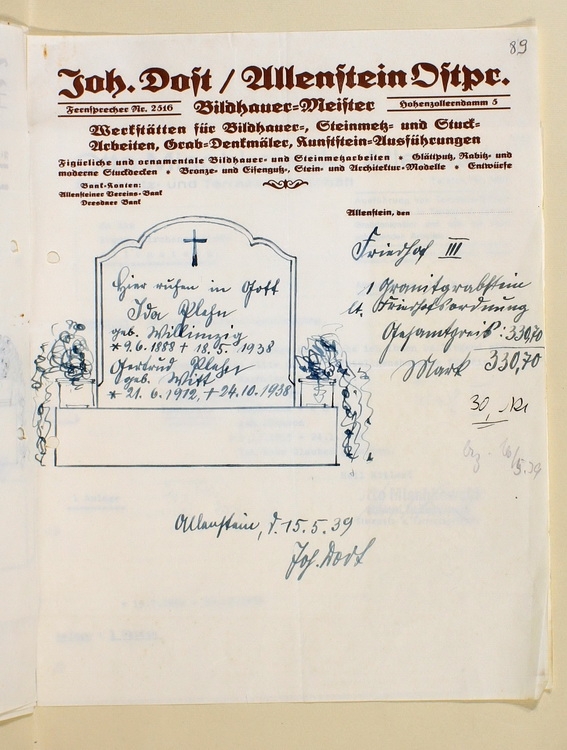 89
Joh. Dost / Allenstein Ostpr.
Fernsprecher Nr. 2516 Bildhauer-Meister Hohenzollerndamm 5
Werkstätten für Bildhauer-, Steinmetz- und Stuck-
Arbeiten, Grab-Denkmäler, Kunststein-Ausführungen
Figürliche und ornamentale Bildhauer- und Steinmetzarbeiten • Glättputz, Rabitz- und
moderne Stuckdecken • Bronze- und Eisenguß-, Stein- und Architektur-Modelle • Entwürfe
Bank-Konten:
Allensteiner Vereins-Bank
Dresdner Bank
Allenstein, den
Friedhof III
1 Granitgrabstein
lt. Friedhofsordnung
Gesamtpreis: 330,70
Mark 330,70
30,
Hier ruhen in Gott
Ida Plehn
geb. Williinzig
* 9.6.1888 † 18.5. 1938
Gertrud Plehn
geb. Witt
* 21. 6. 1912, † 24.10.1938
Allenstein, d. 15.5.39
Joh. Dost